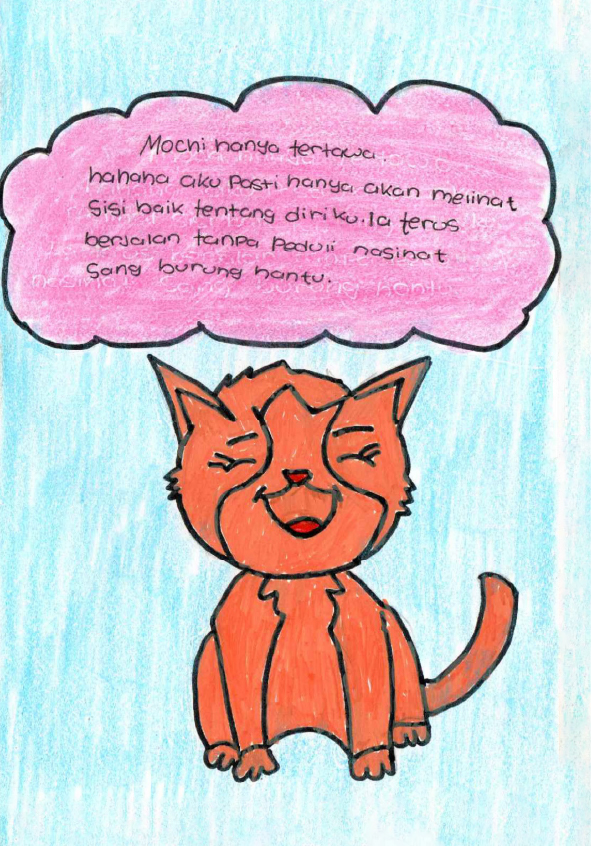 Mochi hanya tertawa.
hahaha aku Pasti hanya akan melihat
Sisi baik tentang diriku. Ia terus
berjalan tanpa Peduli nasihat
Sang burung hantu.